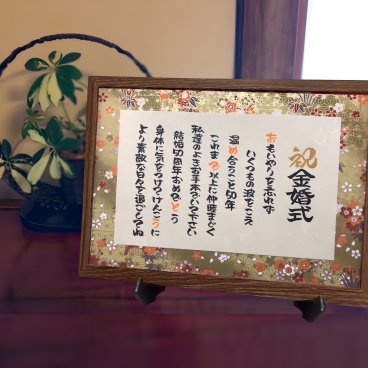 祝金婚式
おもいやりを忘れず
いくつもの波をこえ
温め合うこと50年
これまで以上に仲睦まじく
私達のよきお手本でいて下さい
結婚50周年おめでとう
身体に気をつけてけんこうに
より素敵な日々を過ごしてね